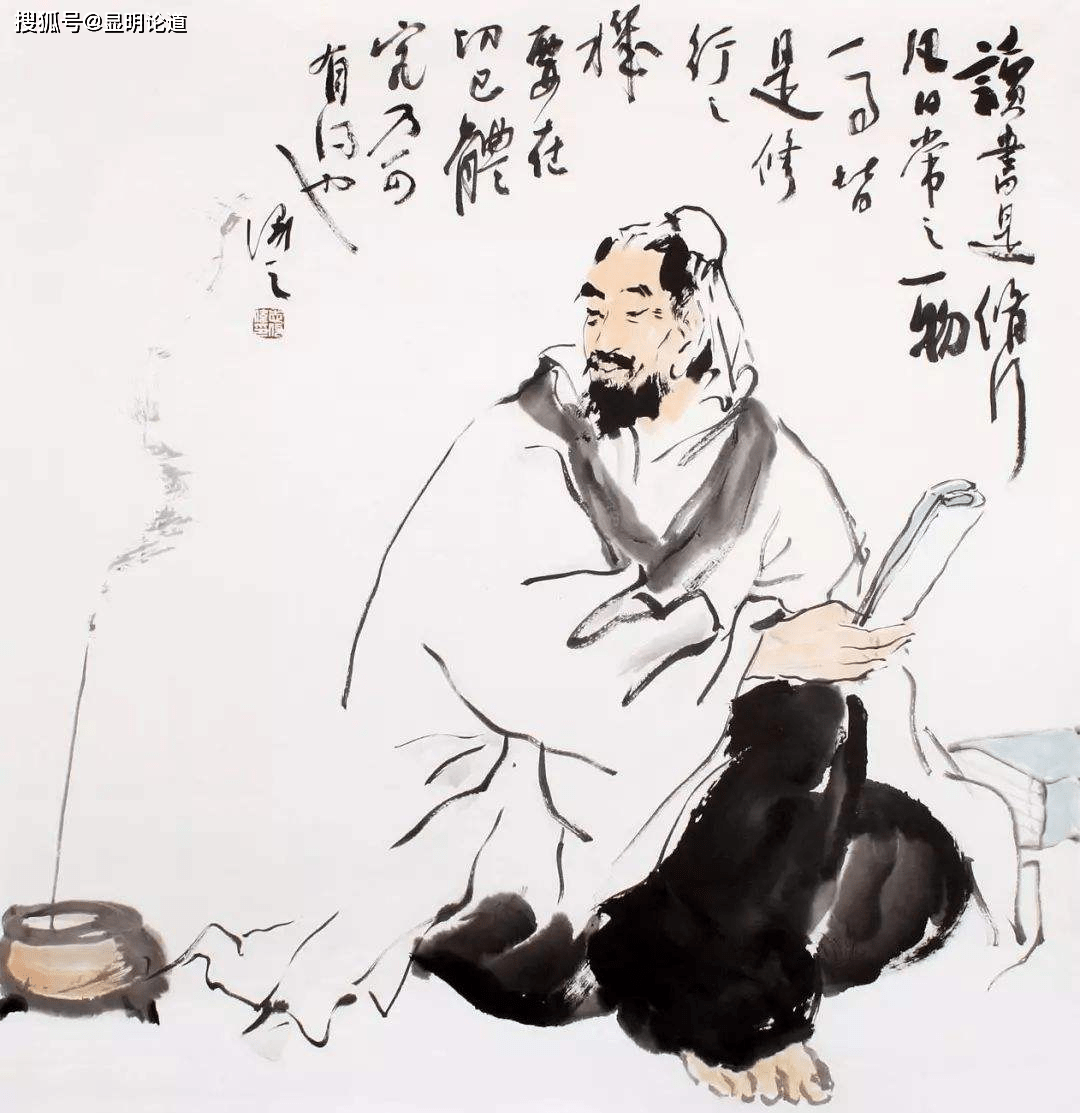 搜狐号@显明论道
讀書是脩行
凡日常之一物
一事皆
是修
行之
機
要在
切己體
究乃可
有得也